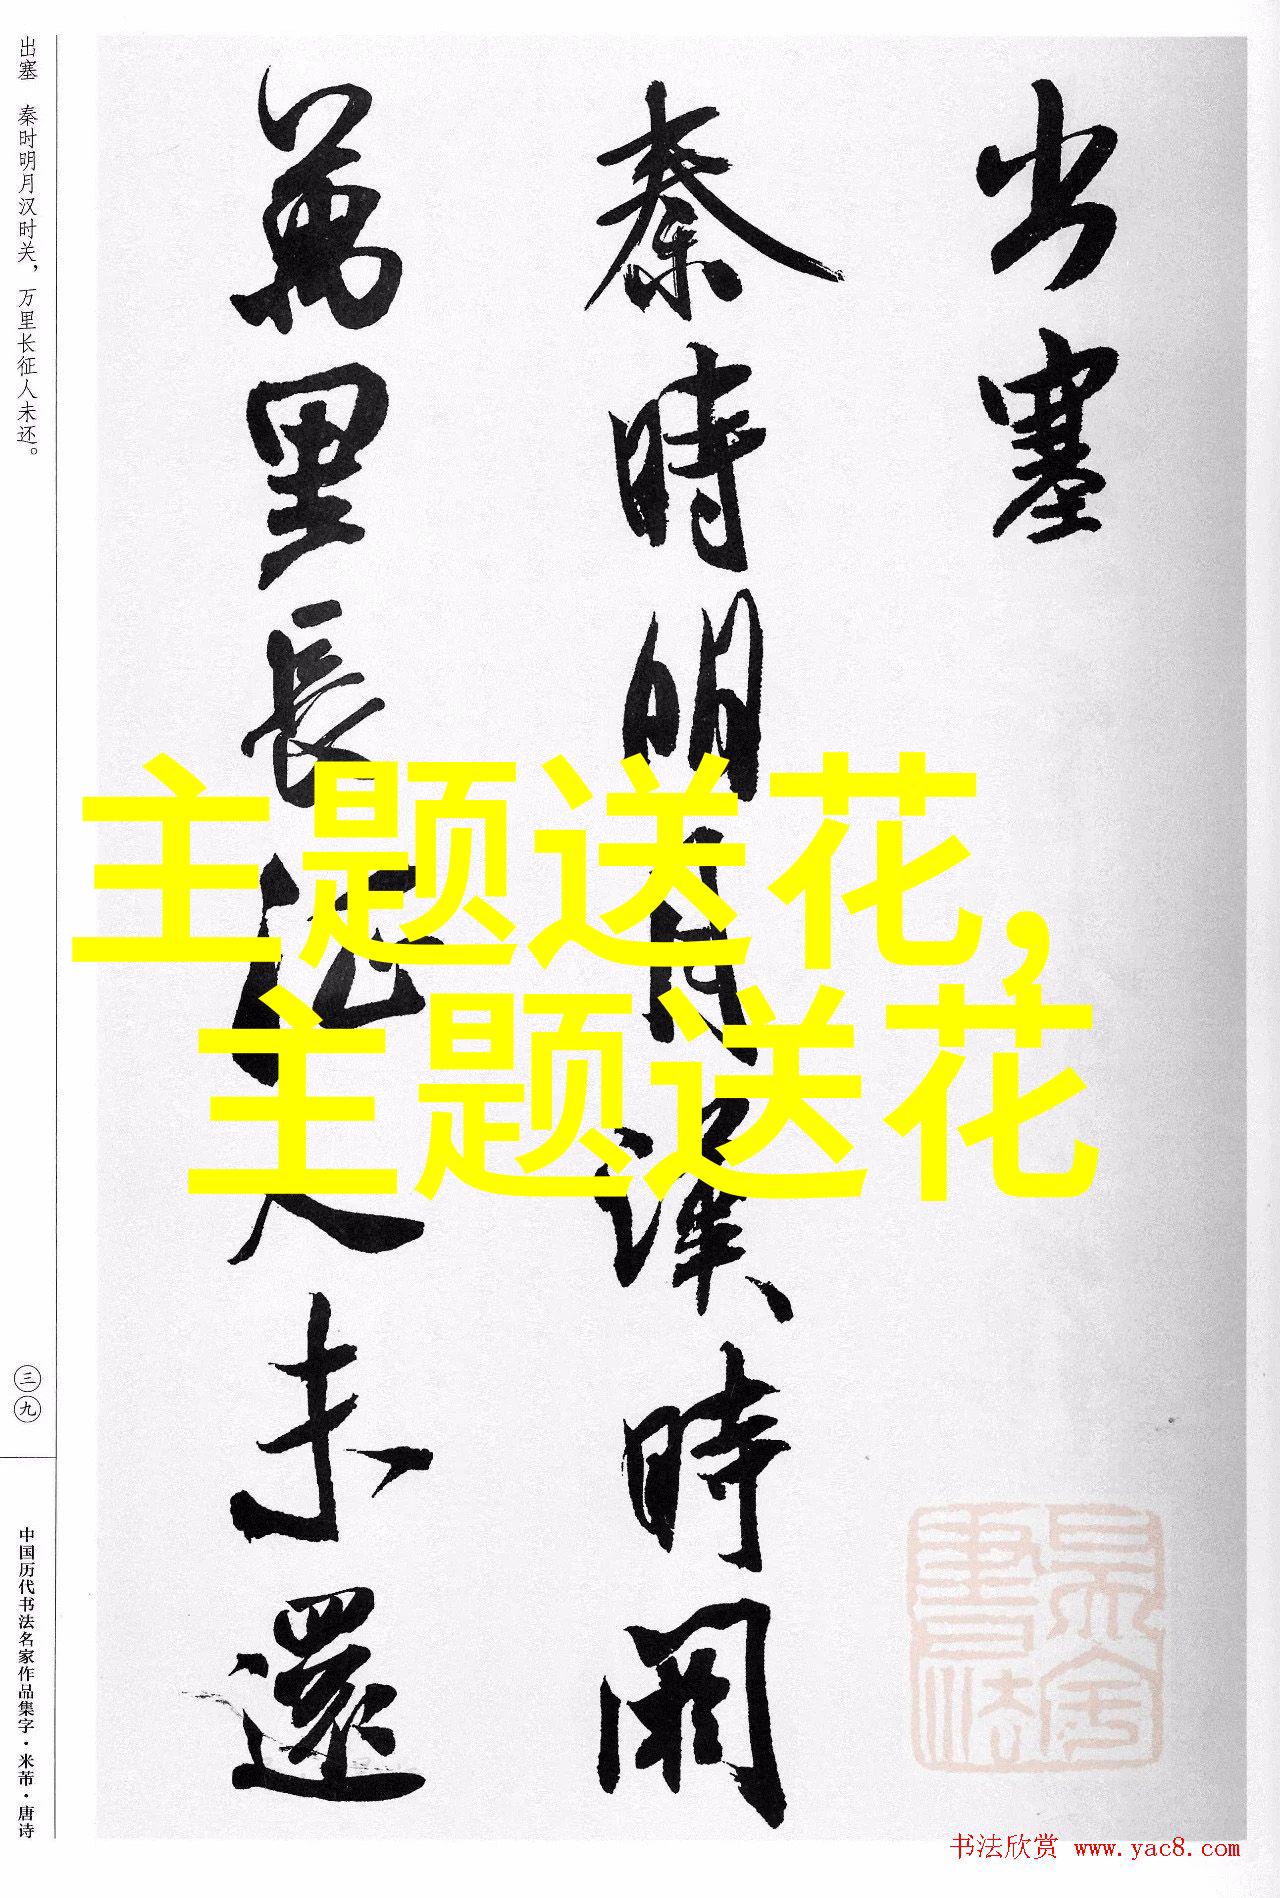 出塞
秦時明月漢時関
萬里長征人未還
主题送花,
主题送花
出塞 秦时明月汉时关，万里长征人未还。
三九
中国历代书法名家作品集字·米芾·唐诗
书法欣赏 www.yac8.com